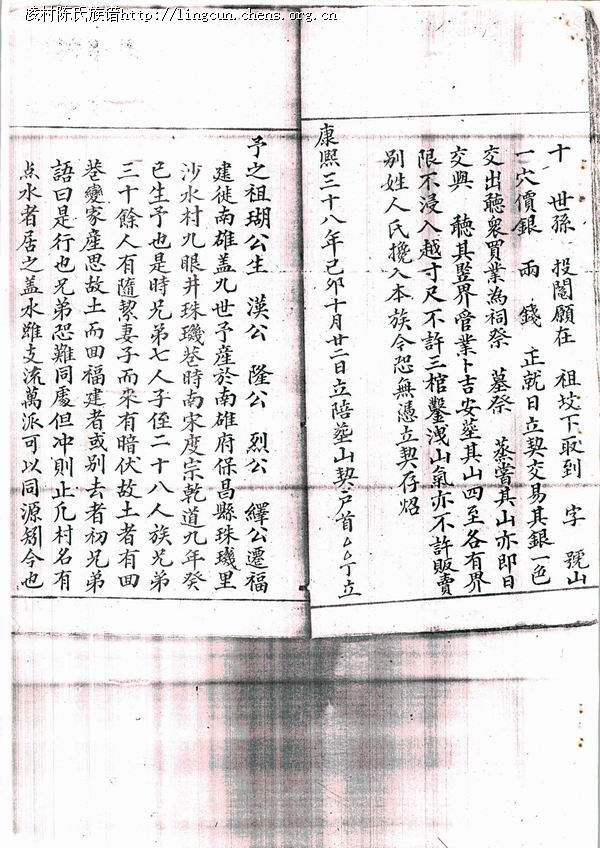 凌村陈氏族谱http://lingcun.chens.org.cn
十 世孫 投閹願在 祖坟下取到 字 號山
一穴價銀 兩 錢 正就日立契交易其銀一色
交出聽衆買業為祠祭 墓祭 蒸嘗其山亦即日
交與 聽其竪界管業卜吉安塟其山四至各有界
限不浸入越寸尺不許三棺鑿洩山氣亦不許販賣
别姓人氏攙入本族今恐無憑立契存炤
康熙三十八年己卯十月廿二日立陪塟山契户首厶厶丁立
予之祖瑚公生 漢公 隆公 烈公 繹公遷福
建徙南雄盖九世予產於南雄府保昌縣珠璣里
沙水村九眼井珠璣巷時南宋度宗乾道九年癸
巳生予也是時兄弟七人子侄二十八人族兄弟
三十餘人有隨挈妻子而來有暗伏故土者有回
巷變家産思故土而回福建者或别去者初兄弟
語曰是行也兄弟恐難同處但冲則止凢村名有
点水者居之盖水雖支流萬派可以同源矧今也